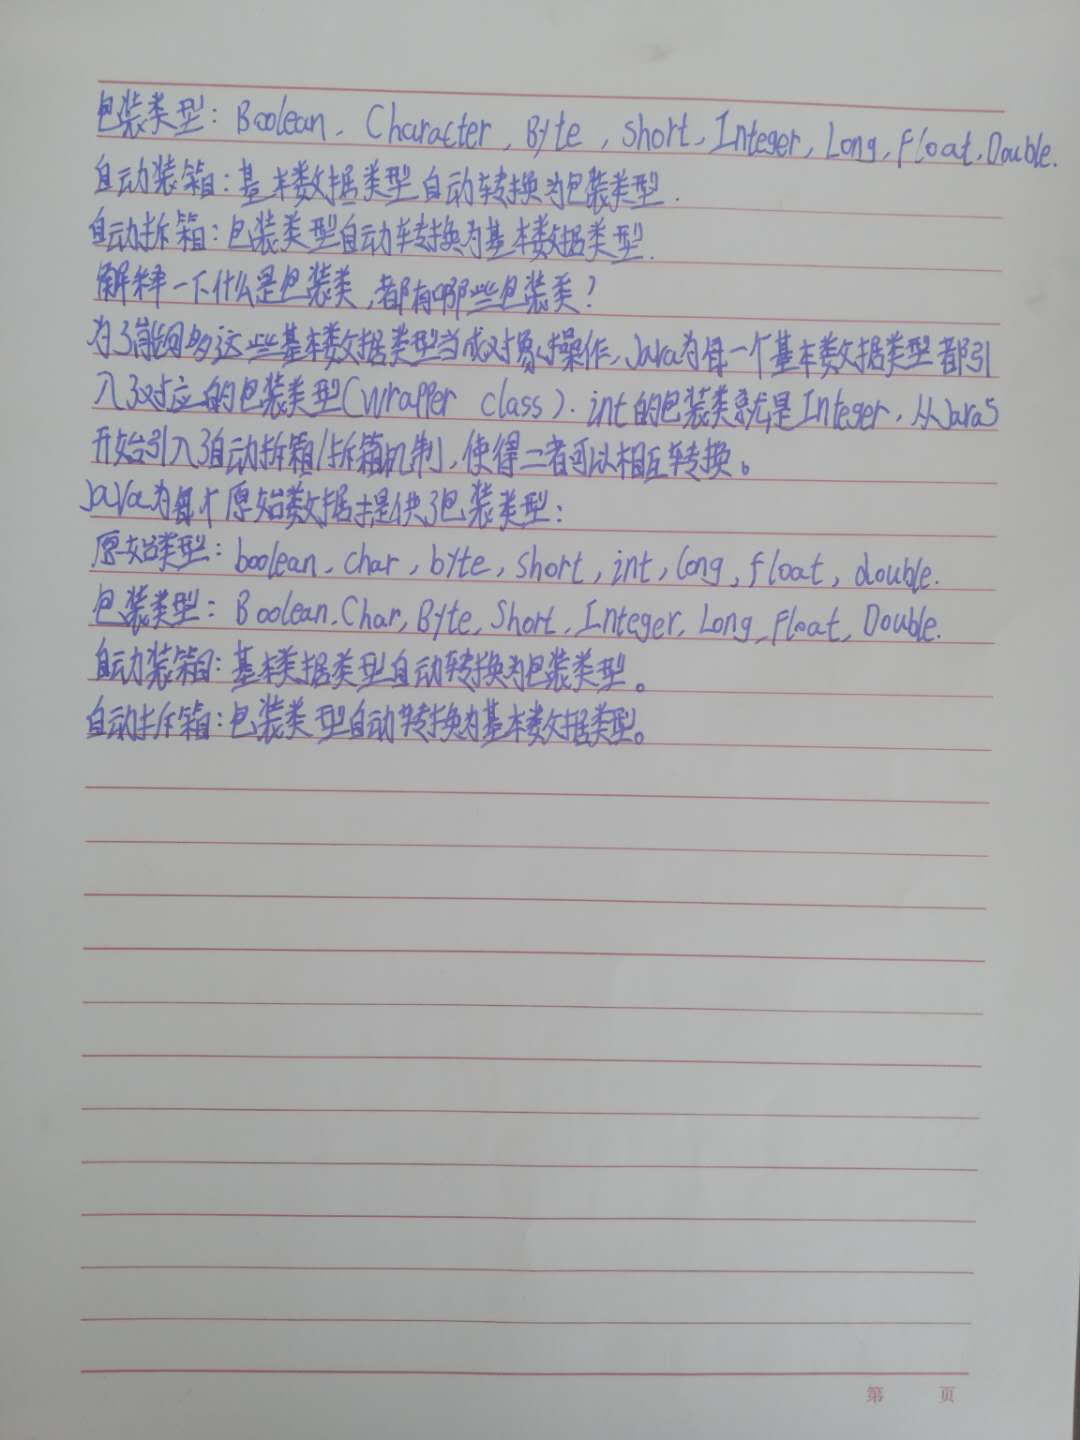 包装类型：Boolean、Character，Byte，Short，Integer，Long，Float，Double.
自动装箱：基本数据类型自动转换为包装类型.
自动拆箱：包装类型自动转换为基本数据类型.
解释一下什么是包装类，都有哪些包装类？
为了能够多这些基本数据类型当成对象操作，Java为每一个基本数据类型都引
入了对应的包装类型(wrapper class). int的包装类就是Integer，从Java5
开始引入了自动拆箱/拆箱机制，使得二者可以相互转换。
Java为每个原始数据提供了包装类型：
原始类型：boolean，char，byte，short，int，long，float，double.
包装类型：Boolean，Char，Byte，Short，Integer，Long，Float，Double.
自动装箱：基本类据类型自动转换为包装类型。
自动拆箱：包装类型自动转换为基本数据类型。
第 页